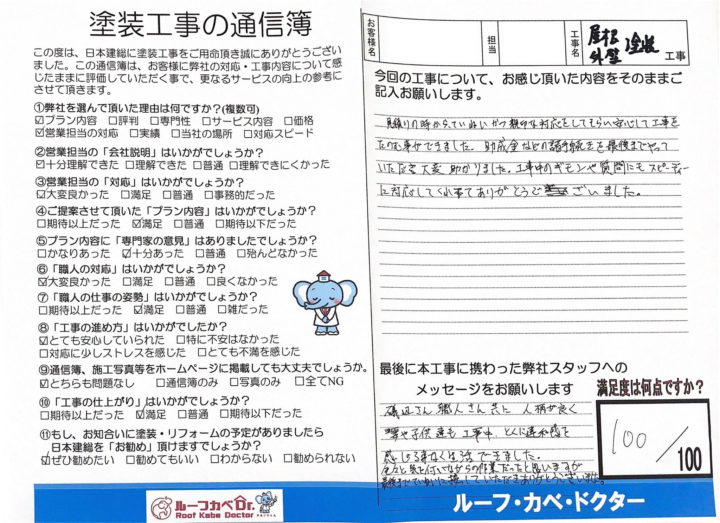 塗装工事の通信簿
この度は、日本建総に塗装工事をご用命頂き誠にありがとうござい
ました。この通信簿は、お客様に弊社の対応・工事内容について感
じたままに評価していただく事で、更なるサービスの向上の参考に
させて頂きます。
①弊社を選んで頂いた理由は何ですか?(複数可)
☑プラン内容 □評判 □専門性 □サービス内容 □価格
☑営業担当の対応 □実績 □当社の場所 □対応スピード
②営業担当の「会社説明」はいかがでしょうか?
☑十分理解できた □理解できた □普通 □理解できにくかった
③営業担当の「対応」はいかがでしょうか?
☑大変良かった □満足 □普通 □事務的だった
④ご提案させて頂いた「プラン内容」はいかがでしょうか?
□期待以上だった ☑満足 □普通 □期待以下だった
⑤プラン内容に「専門家の意見」はありましたでしょうか?
□かなりあった ☑十分あった □普通 □殆んどなかった
⑥「職人の対応」はいかがでしょうか?
☑大変良かった □満足 □普通 □良くなかった
⑦「職人の仕事の姿勢」はいかがでしょうか?
□期待以上だった ☑満足 □普通 □雑だった
⑧「工事の進め方」はいかがでしたか?
☑とても安心していられた □特に不安はなかった
□対応に少しストレスを感じた □とても不満を感じた
⑨通信簿、施工写真等をホームページに掲載しても大丈夫でしょうか。
☑どちらも問題なし □通信簿のみ □写真のみ □全てNG
⑩「工事の仕上がり」はいかがでしょうか?
□期待以上だった ☑満足 □普通 □期待以下だった
⑪もし、お知合いに塗装・リフォームの予定がありましたら
日本建総を「お勧め」頂けますでしょうか?
☑ぜひ勧めたい □勧めてもいい □わからない □勧められない
ルーフカベDr.
Roof Kabe Doctor
お客様名
担当
工事名
屋根
外壁 塗装 工事
今回の工事について、お感じ頂いた内容をそのままご
記入お願いします。
見積りの時からていねいかつ親切な対応をしてもらい安心して工事を
たのむ事ができました。助成金などの諸手続きを最後までやって
いただき大変助かりました。工事中のギモンや質問にもスピーディー
に対応してくれてありがとうございました。
最後に本工事に携わった弊社スタッフへの
メッセージをお願いします
磯辺さん 職人さん共に 人柄が良く
妻や子供達も工事中、とくに違和感を
感じる事なく生活できました。
色々と気を付いながらの作業だったと思いますが
満足度は何点ですか?
100/100
ルーフ・カベ・ドクター